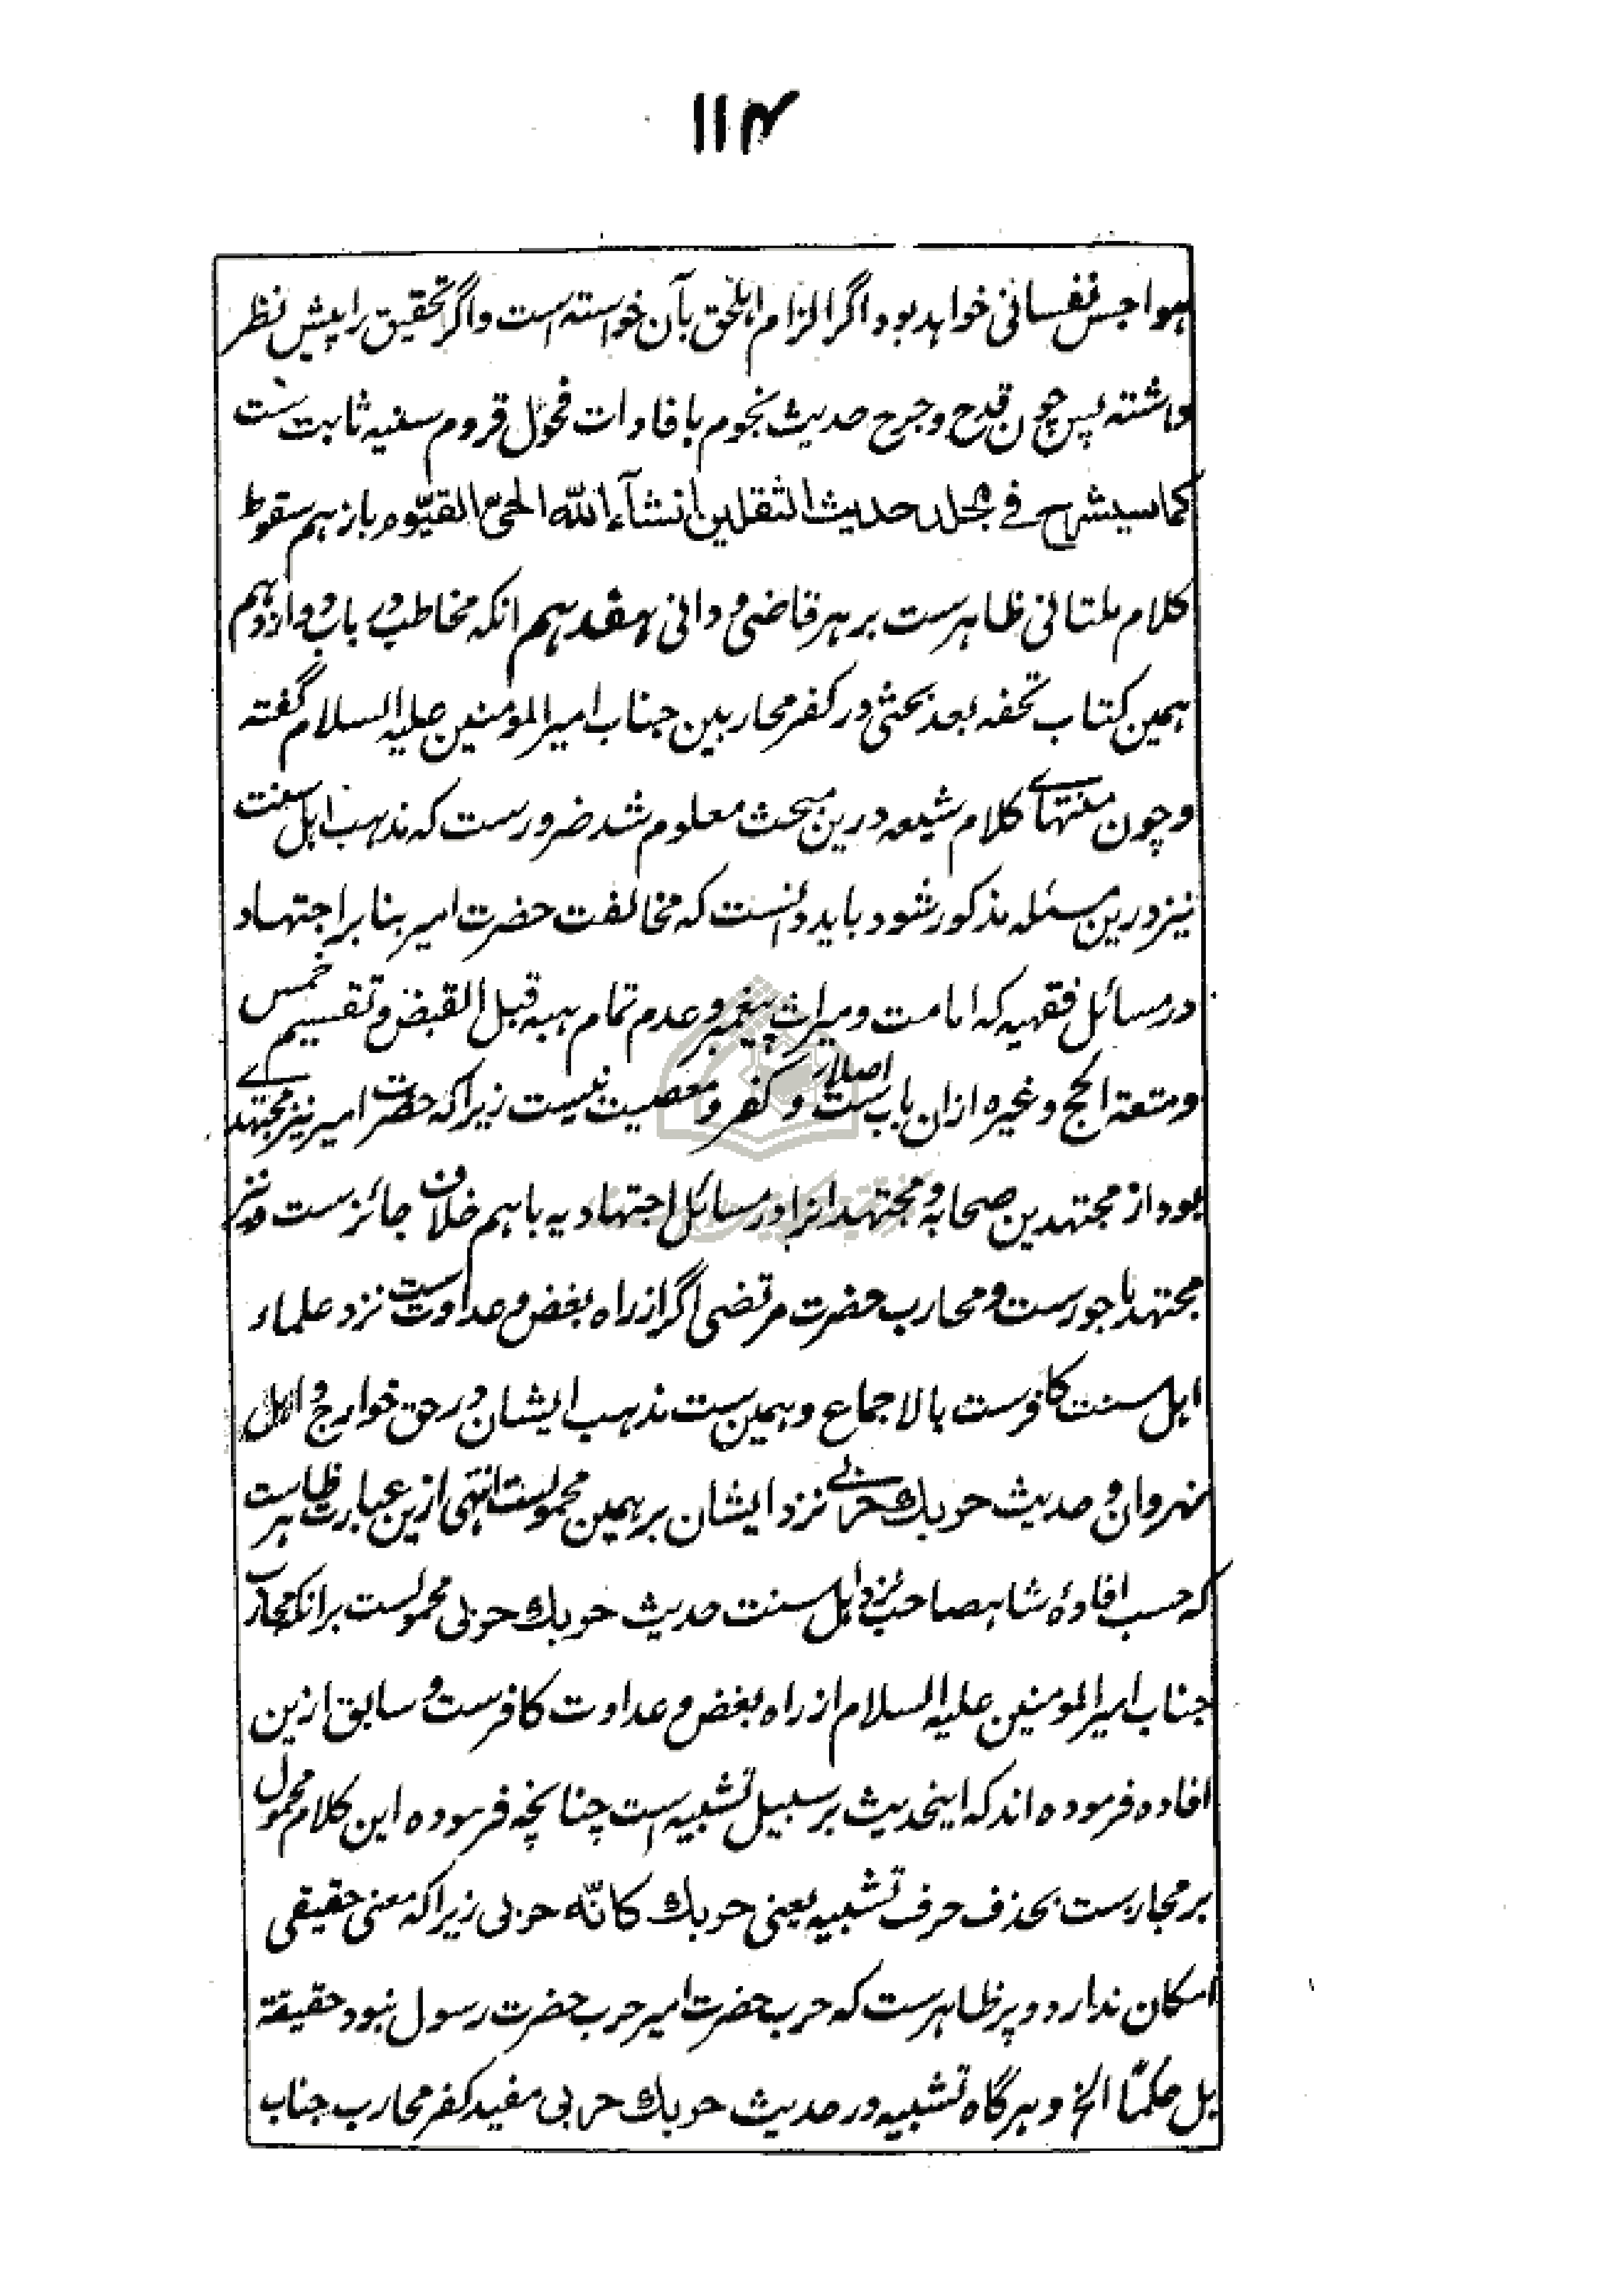 ۱۱۴
هواجس نفسانی خواهد بود اگر الزام اهلحق بآن خواسته است و اگر تحقیق را پیش نظر
داشته پس چون قدح و جرح حدیث نجوم بافادات فحول قروم سنیه ثابت ست
کما سیشرح فی مجلد حدیث الثقلین انشآء الله الحیّ القیّوم باز هم سقوط
کلام ملتانی ظاهرست بر هر قاضی و دانی هفدهم انکه مخاطب در باب دوازدهم
همین کتاب تحفه بعد بحثی در کفر محاربین جناب امیرالمومنین علیه السلام گفته
و چون منتهای کلام شیعه درین مبحث معلوم شد ضرورست که مذهب اهل سنت
نیز درین مسئله مذکور شود باید دانست که مخالفت حضرت امیر بنابر اجتهاد
در مسائل فقهیه که امامت و میراث پیغمبر و عدم تمام هبه قبل القبض و تقسیم خمس
و متعة الحج و غیره ازان باب ست اصلا و کفر و معصیت نیست زیرا که حضرت امیر نیز مجتهدی
بود از مجتهدین صحابه و مجتهدانرا در مسائل اجتهادیه باهم خلاف جائزست و نیز
مجتهد ماجورست و محارب حضرت مرتضی اگر از راه بغض و عداوت ست نزد علماء
اهل سنت کافرست بالاجماع و همین ست مذهب ایشان در حق خوارج و اهل
نهروان و حدیث حربك حربی نزد ایشان بر همین محمولست انتهی ازین عبارت ظاهرست
که حسب افادهٔ شاهصاحب نزد اهل سنت حدیث حربك حربی محمولست برانکه محارب
جناب امیرالمومنین علیه السلام از راه بغض و عداوت کافرست و سابق ازین
افاده فرموده اند که اینحدیث بر سبیل تشبیه است چنانچه فرموده این کلام محمول
بر مجازست بحذف حرف تشبیه یعنی حربك کانّه حربی زیرا که معنی حقیقی
امکان ندارد و پر ظاهرست که حرب حضرت امیر حرب حضرت رسول نبود حقیقة
بل حکمًا الخ و هرگاه تشبیه در حدیث حربك حربی مفید کفر محارب جناب